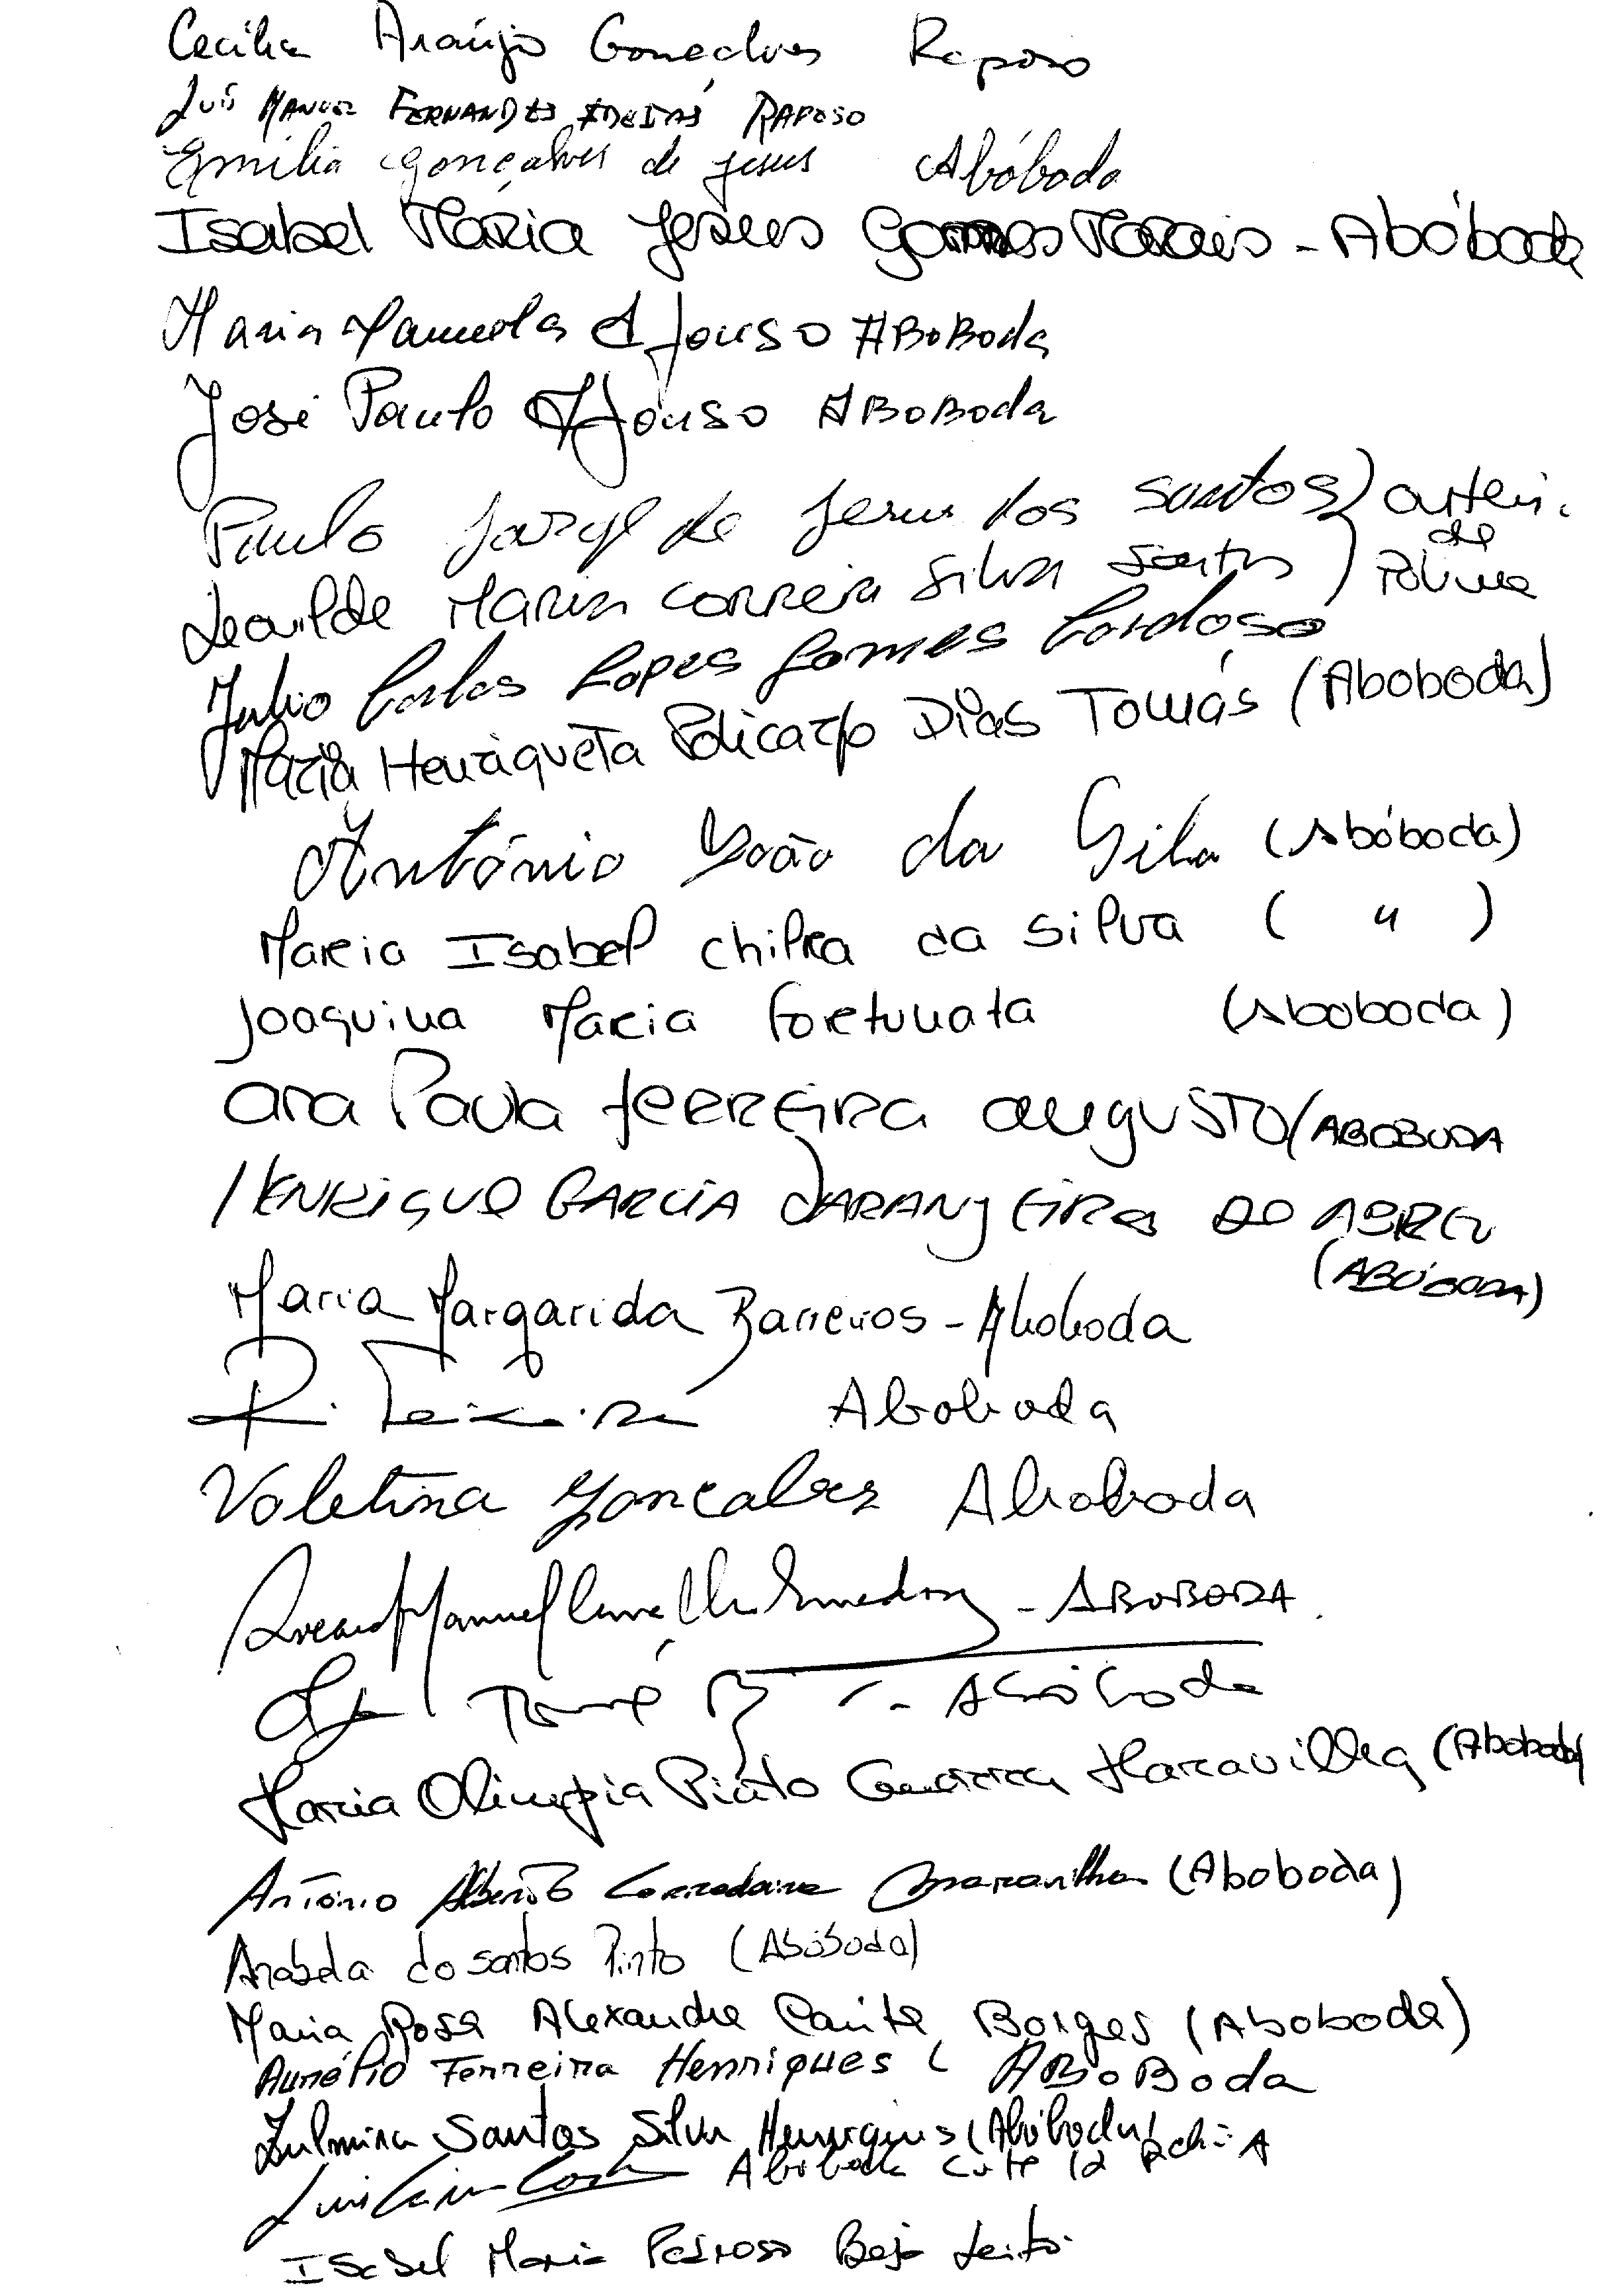 Cecília Araújo Gonçalves Raposo
Luís Manuel Fernandes Freitas Raposo
Emília Gonçalves de Jesus Abóboda
Isabel Maria Jesus Gomes Morais - Abóboda
Maria Manuela Afonso ABoBoda
José Paulo Afonso ABoBoda
Paulo Jorge de Jesus dos Santos
Leonilde Maria Correia Silva Santos
de Polima
Julio Carlos Lopes Gomes Cardoso
Maria Henriqueta Policarpo Dias Tomás (Aboboda)
António João da Silva (Abóboda)
Maria Isabel Chilra da Silva ( " )
Joaquina Maria Fortunata (Aboboda)
Ana Paula Ferreira Augusto / ABOBODA
HENRIQUE GARCIA LARANJEIRA DO ABREU
(ABÓBODA)
Maria Margarida Barreiros - Aboboda
Teixeira Aboboda
Valetina Gonçalves Aboboda
Manuel - ABOBODA
Tomé - Abóboda
Maria Olimpia Pinto Guerra Maravilha (Aboboda)
António Alberto Maravilha (Aboboda)
Anabela do santos Pinto (Abóboda)
Maria Rosa Alexandre Borges (Aboboda)
Aurélio Ferreira Henriques ( ABoBoda
Zulmira Santos Silva Henriques (Abóboda)
Luis Costa Abóboda Lote 12
Isabel Maria Pedroso Beja Leitão